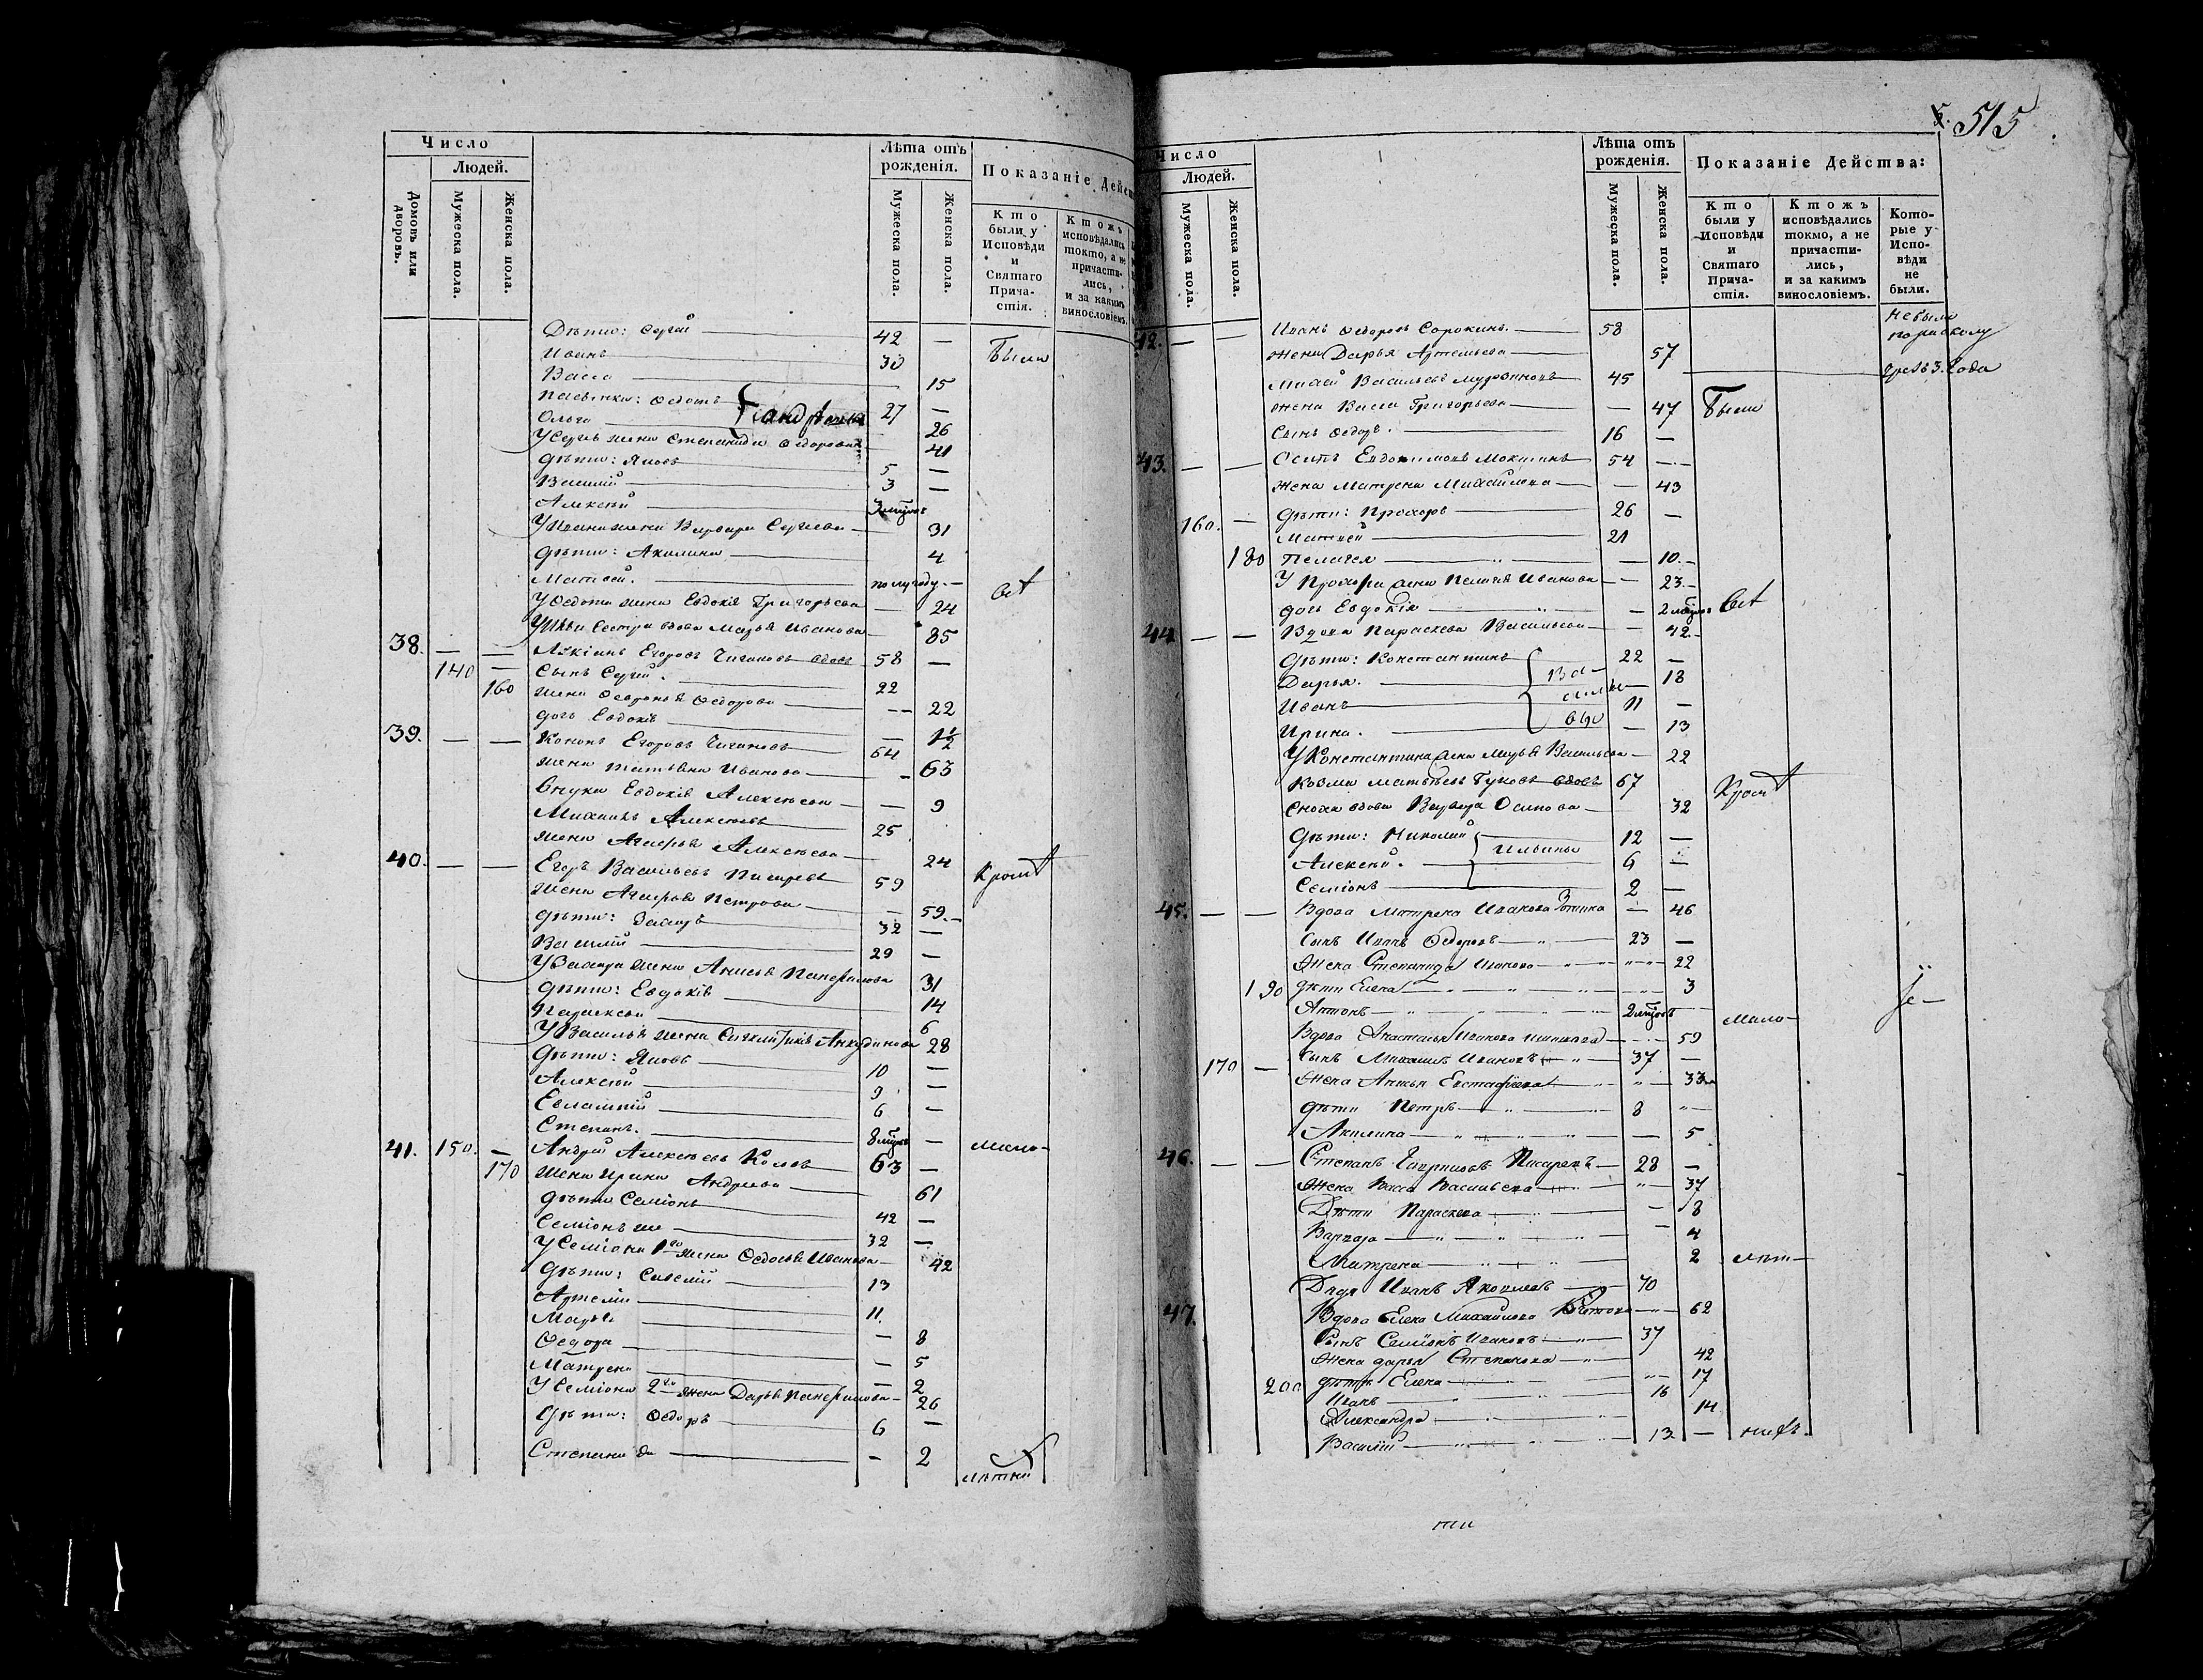 Число
Людей.
Домовъ или дворовъ.
Мужеска пола.
Женска пола.
Лѣта отъ рожденія.
Мужеска пола.
Женска пола.
Показаніе Дейст
Кто были у Исповѣди и Святаго Причастія.
Ктожъ исповѣдались токмо, а не причастились, и за какимъ винословіемъ.
Дѣти: Сергей 42 — были
Иванъ 30
Васса 15
Федотъ 27 —
Ольга 26
У Сергѣя жена Степанида Федорова 41
дѣти: Яковъ 5 —
Василій 3 —
Алексѣй
У Ивана жена Варвара Сергѣева 31
дѣти: Акилина 4
Матвей. полугоду. — всѣ
У Федота жена Евдокія Григорьева — 24
сестра вдова Марья Иванова 85
38. — — Егоровъ вдовъ 58 —
140 — Сынъ Сергей. 22
160 жена Федорова — 22
дочь Евдокія — 1½
39. — — Кононъ Егоровъ 64
жена Татьяна Иванова — 63
внука Евдокія Алексѣева — 9
Михаилъ Алексѣевъ 25
жена Агафья Алексѣева 24
40. — — Егоръ Васильевъ 59 кромѣ
жена Агафья Петрова — 59.
дѣти: Захаръ 32 —
Василій 29 —
У Захара жена Анисья Панфилова 31
дѣти: Евдокія 14
Параскева 6
У Василья жена Анкудинова 28
дѣти: Яковъ 10 —
Алексѣй 9 —
Евлампій 6 —
Степанъ. —
41. 150. — Андрей Алексѣевъ 63 — мало-
170 жена Ирина Андреева 61
дѣти Семіонъ 42 —
Семіонъ же 32 —
У Семіона 1го жена Федосья Иванова 42
дѣти: Савелій 13
Артемій 11.
Марья — 8
Федора — 5
Матрена — 2
У Семіона 2го жена Дарья Панфилова 26
дѣти: Федоръ 6 —
Степанида — 2
лѣтни
515
Число
Людей.
Мужеска пола.
Женска пола.
Лѣта отъ рожденія.
Мужеска пола.
Женска пола.
Показаніе Действа:
Кто были у Исповѣди и Святаго Причастія.
Ктожъ исповѣдались токмо, а не причастились, и за какимъ винословіемъ.
Которые у Исповѣди не были.
42. — — Иванъ Федоровъ Сорокинъ. 58 не были по расколу
жена Дарья Артемьева 57
Васильевъ 45 3. года
жена Васса Григорьева — 47 были
сынъ Федоръ. 16 —
43. — — Осипъ Евдокимовъ 54 —
жена Матрена Михайлова — 43
160. — дѣти: Прохоръ 26 —
Матвей 21
180 Пелагея — 10.
У Прохора жена Пелагея Иванова — 23.
дочь Евдокія — всѣ
44 — — Вдова Параскева Васильева — 42.
дѣти: Константинъ 22 —
Дарья. 18
Иванъ 11 —
Ирина. — 13
Васильевы
У Константина жена Марья Васильева — 22
Козма Матвѣевъ вдовъ 67 Кромѣ
Сноха вдова Варвара Осипова — 32
дѣти: Николай 12 —
Алексѣй. 6 —
Семіонъ 2 —
Ильины
45. — — Вдова Матрена Иванова — 46
Сынъ Иванъ Федоровъ 23 —
Жена Степанида Иванова 22
190 дѣти Елена 3
Антонъ мало-
Вдова Анастасья Иванова 59
170 — Сынъ Михаилъ Ивановъ 37 —
Жена Анисья Евстафіева 33
дѣти Петръ 8
Акилина — 5.
46. — — Степанъ Гавриловъ 28 —
Жена Васса Васильева 37
Дѣти Параскева — 8
Варвара — 4
Матрена 2 лѣт-
Дядя Иванъ Яковлевъ 70
47. Вдова Елена Михайлова 62
Сынъ Семіонъ Ивановъ 37
Жена Дарья Степанова 42
200 дѣти Елена 17
Иванъ 16
Александра 14
Василій 13 — нихъ.